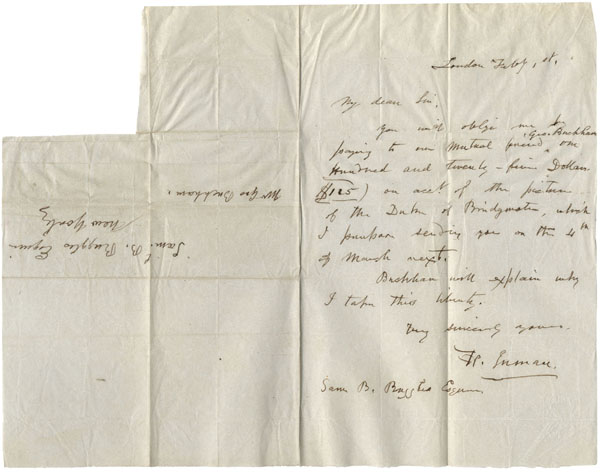 London Feby. 1st.
My dear Sir,
You will oblige me by
paying to our mutual friend, Geo. Buckham one
Hundred and twenty-five Dollars
($125) on acct of the picture
of the Duke of Bridgwater, which
I purpose sending you on the 4th
of March next.
Buckham will explain why
I take this liberty.
Very sincerely yours.
H. Inman.
Saml B. Ruggles Esquire
Mr Geo Buckham.
Saml. B. Ruggles Esquire
New York